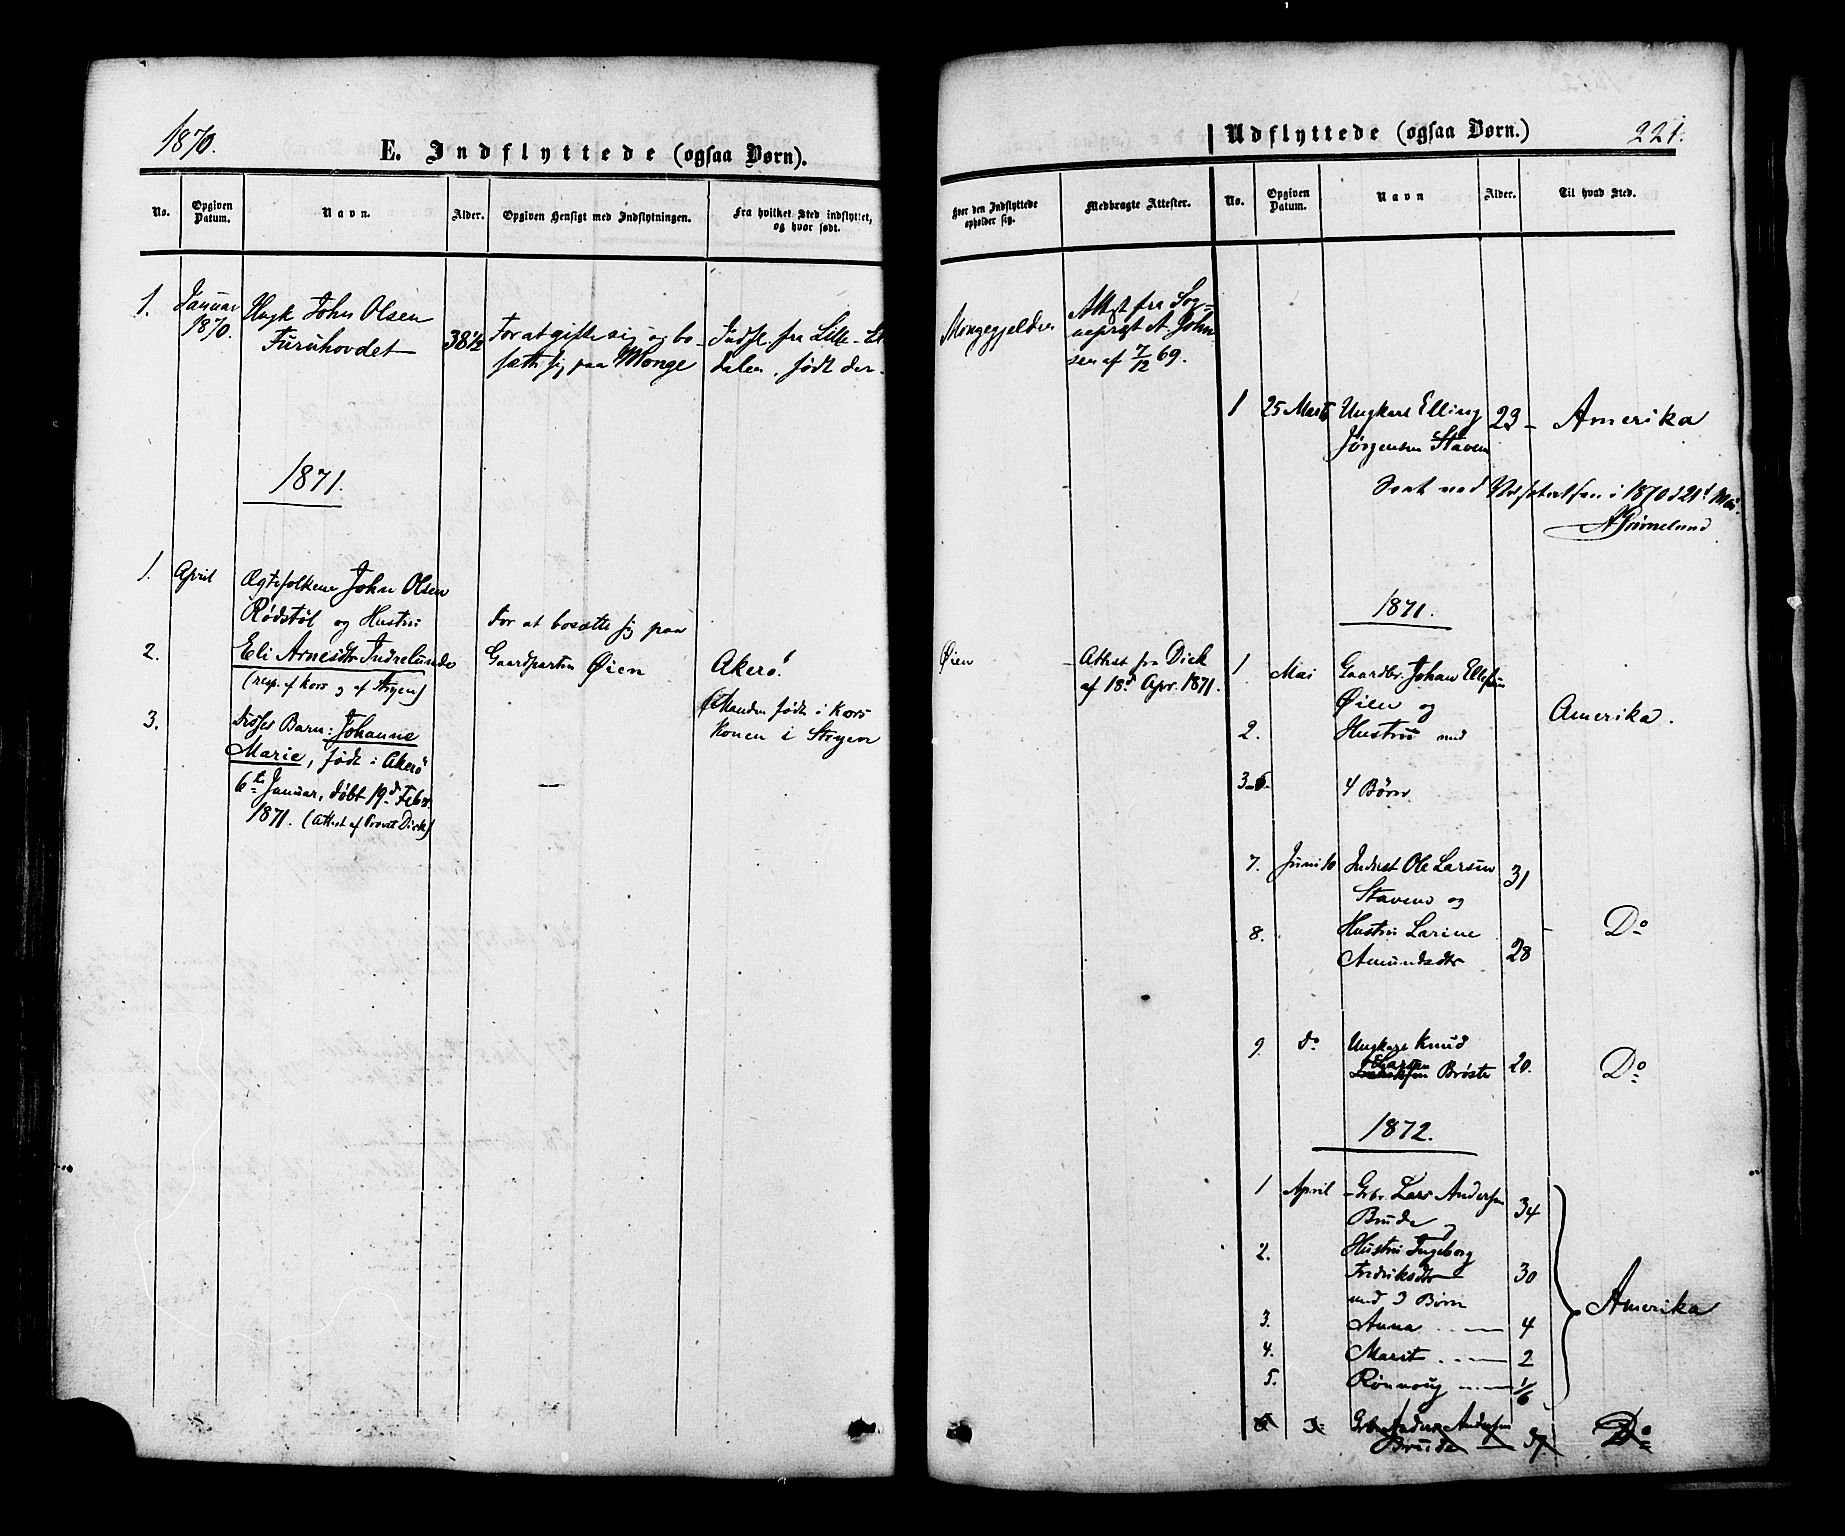 1870.
E. Indflyttede (ogsaa Børn).
No.
Opgiven Datum.
Navn.
Alder.
Opgiven Hensigt med Indflytningen.
Fra hvilket Sted indflyttet, og hvor født.
1.
Januar
1870.
Ungk John Olsen
Furuhovdet
38½
For at gifte sig og bo-
sætte sig paa Monge
Indfl. fra Lille-El
dalen, født der.
1871.
1.
April
Ægtefolkene John Olsen
Rødstøl og Hustru
2.
Eli Arnesdtr Indrelunde
(resp. af Kors og af Stryen)
for at bosætte sig paa
Gaardparten Øien
Akerø.
(Manden født i Kors
Konen i Stryen
3.
disses Barn: Johanne
Marie, født i Akerø
6te Januar, døbt 19d Febr.
1871. (Attest af Provst Dick)
—
Udflyttede (ogsaa Børn.)
221.
Hvor den Indflyttede opholder sig.
Medbragte Attester.
No.
Opgiven Datum.
Navn
Alder.
Til hvad Sted.
Mongegjelden
Attest fra Sog-
neprest A. John
sen af 7/12 69.
1
25 Marts
Ungkarl Elling
Jørgensen Staven
23
Amerika
i 1870 d 21d Mai.
A Grimelund
1871.
Øien
Attest fra Dick
af 18d Apr. 1871.
1.
Mai
Gaardbr. Johan Ellefsen
Øien og
2.
Hustru med
Amerika.
3-6
4 Børn
7.
Juni 10
Inderst Ole Larsen
Staven og
31
8.
Hustru Larine
Amundsdtr
28
Do
9.
do
Ungkarl Knud
Larsen
Brøste
20.
Do
1872.
1
April
Gbr. Lars Andersen
Brude og
34
2.
Hustru Ingeborg
Fredriksdtr
30
med 3 Børn
3.
Anna
4
4.
Marit
2
5.
Rønnoug
1/6
Amerika
6
Gbr. Anders Andersen
Brude
37.
Do